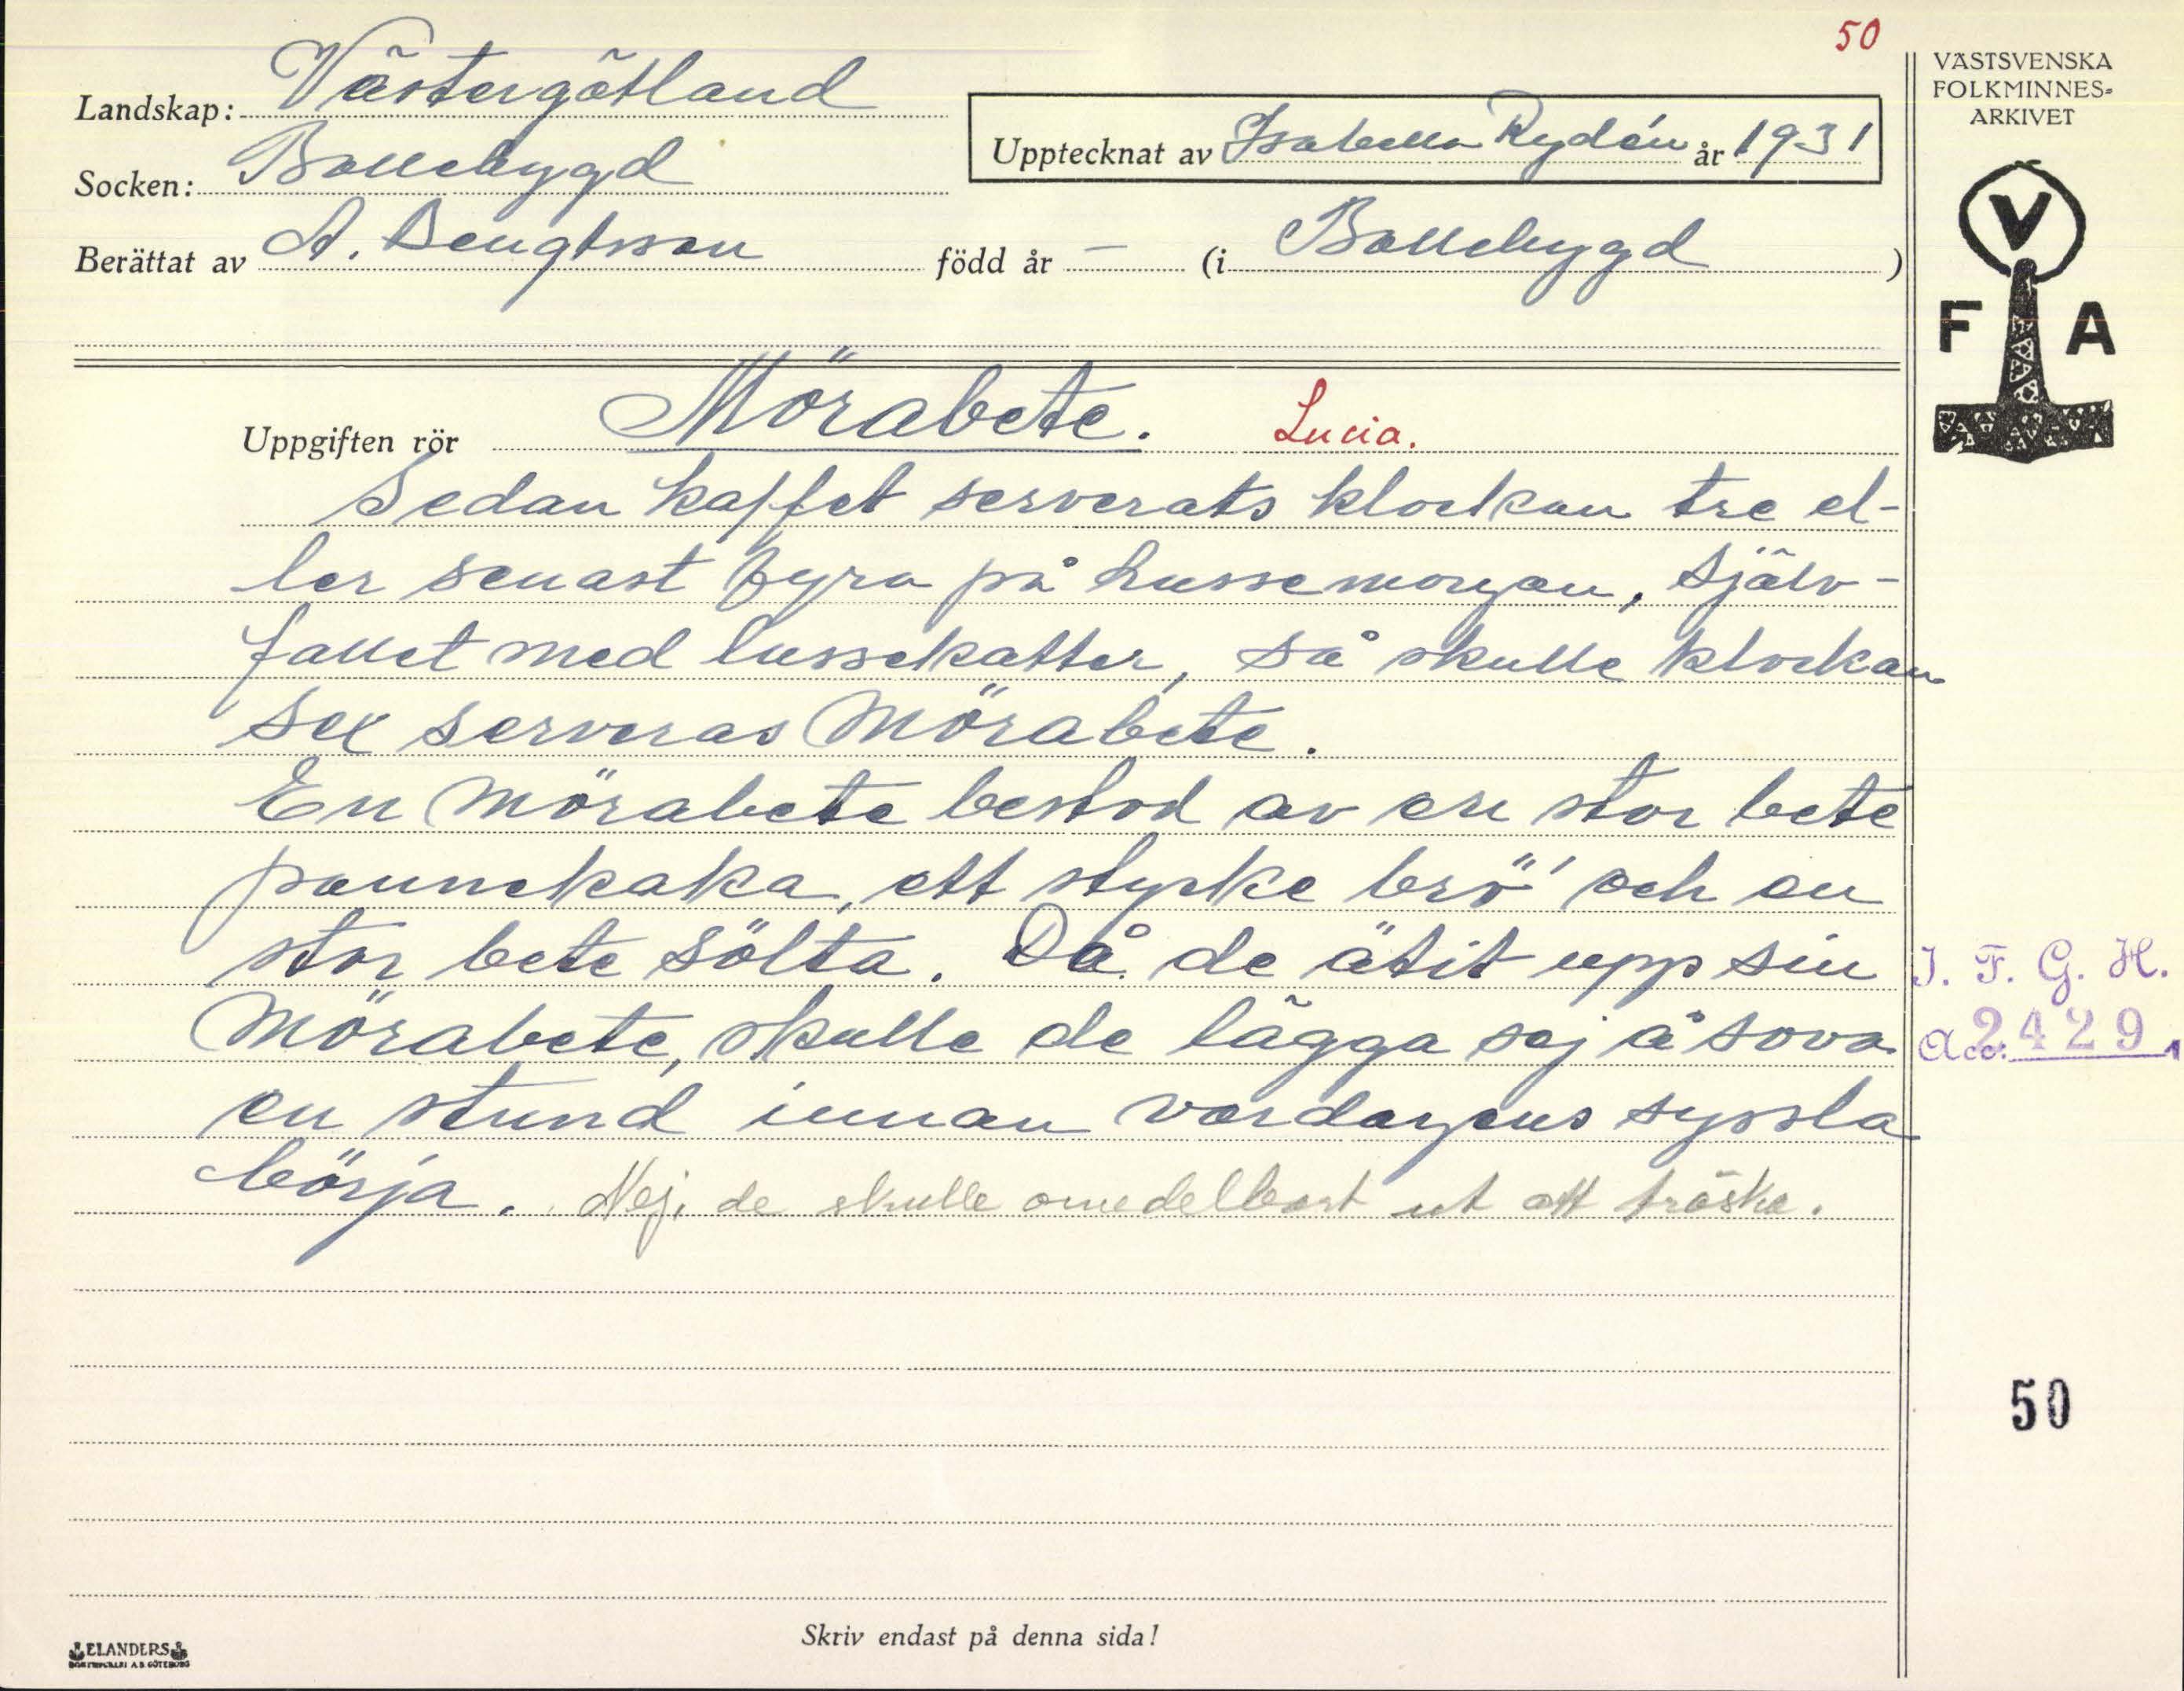 50
VÄSTSVENSKA
FOLKMINNES-
ARKIVET
Landskap: Västergötland
Upptecknat av Isabella Rydén år 1931
Socken: Bollebygd
Berättat av A. Bengtsson född år – (i Bollebygd)
V
F A
Uppgiften rör Mörabete. Lucia.
Sedan kaffet serverats klockan tre el-
ler senast fyra på Lussemorgon, själv-
fallet med lussekatter, så skulle klockan
sex serveras Mörabete.
En Mörabete bestod av en stor bete
pannekaka, ett stycke brö' och en
stor bete sölta. Då de ätit upp sin
Mörabete, skulle de lägga sej å sova
en stund innan vardagens syssla
börja. Nej, de skulle omedelbart ut att tröska.
I. F. G. H.
Acc. 2429
50
Skriv endast på denna sida!
ELANDERS
BOKTRYCKERI A.B. GÖTEBORG